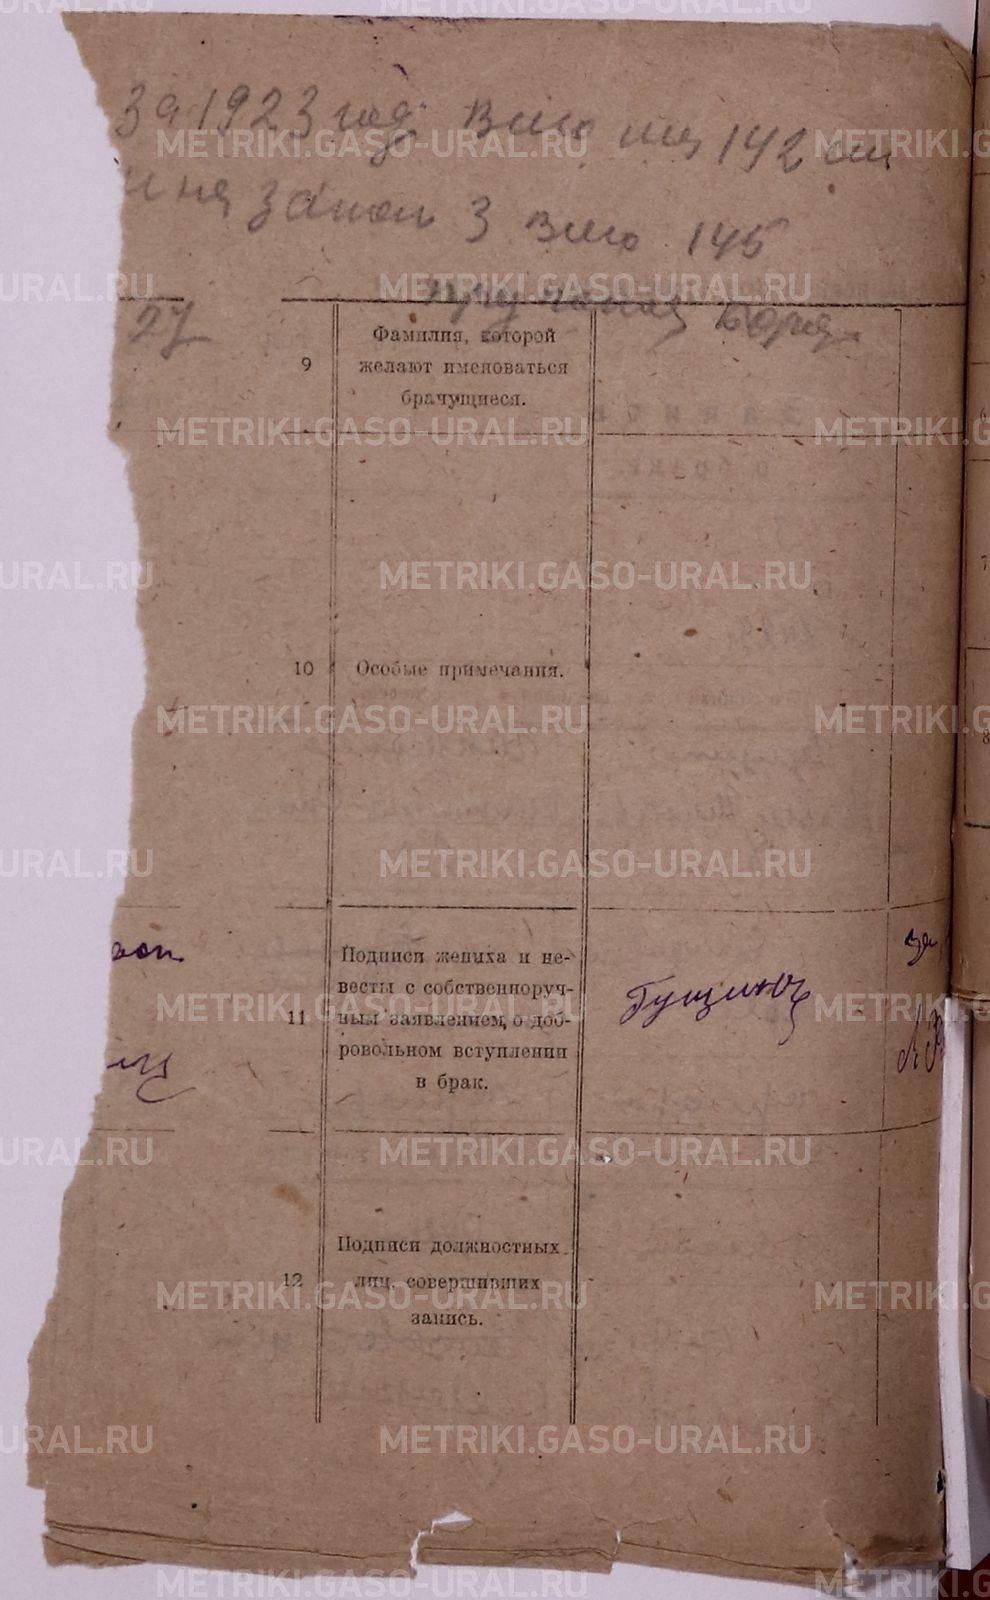 за 1923 год. Всего на 142 
и на 3 Всего 145
27
9
Фамилия, которой
желают именоваться
брачущиеся.
10
Особые примечания.
11
Подписи жениха и не-
весты с собственноруч-
ным заявлением, о доб-
ровольном вступлении
в брак.
Гущина
за
12
Подписи должностных
лиц, совершивших
запись.
METRIKI.GASO-URAL.RU